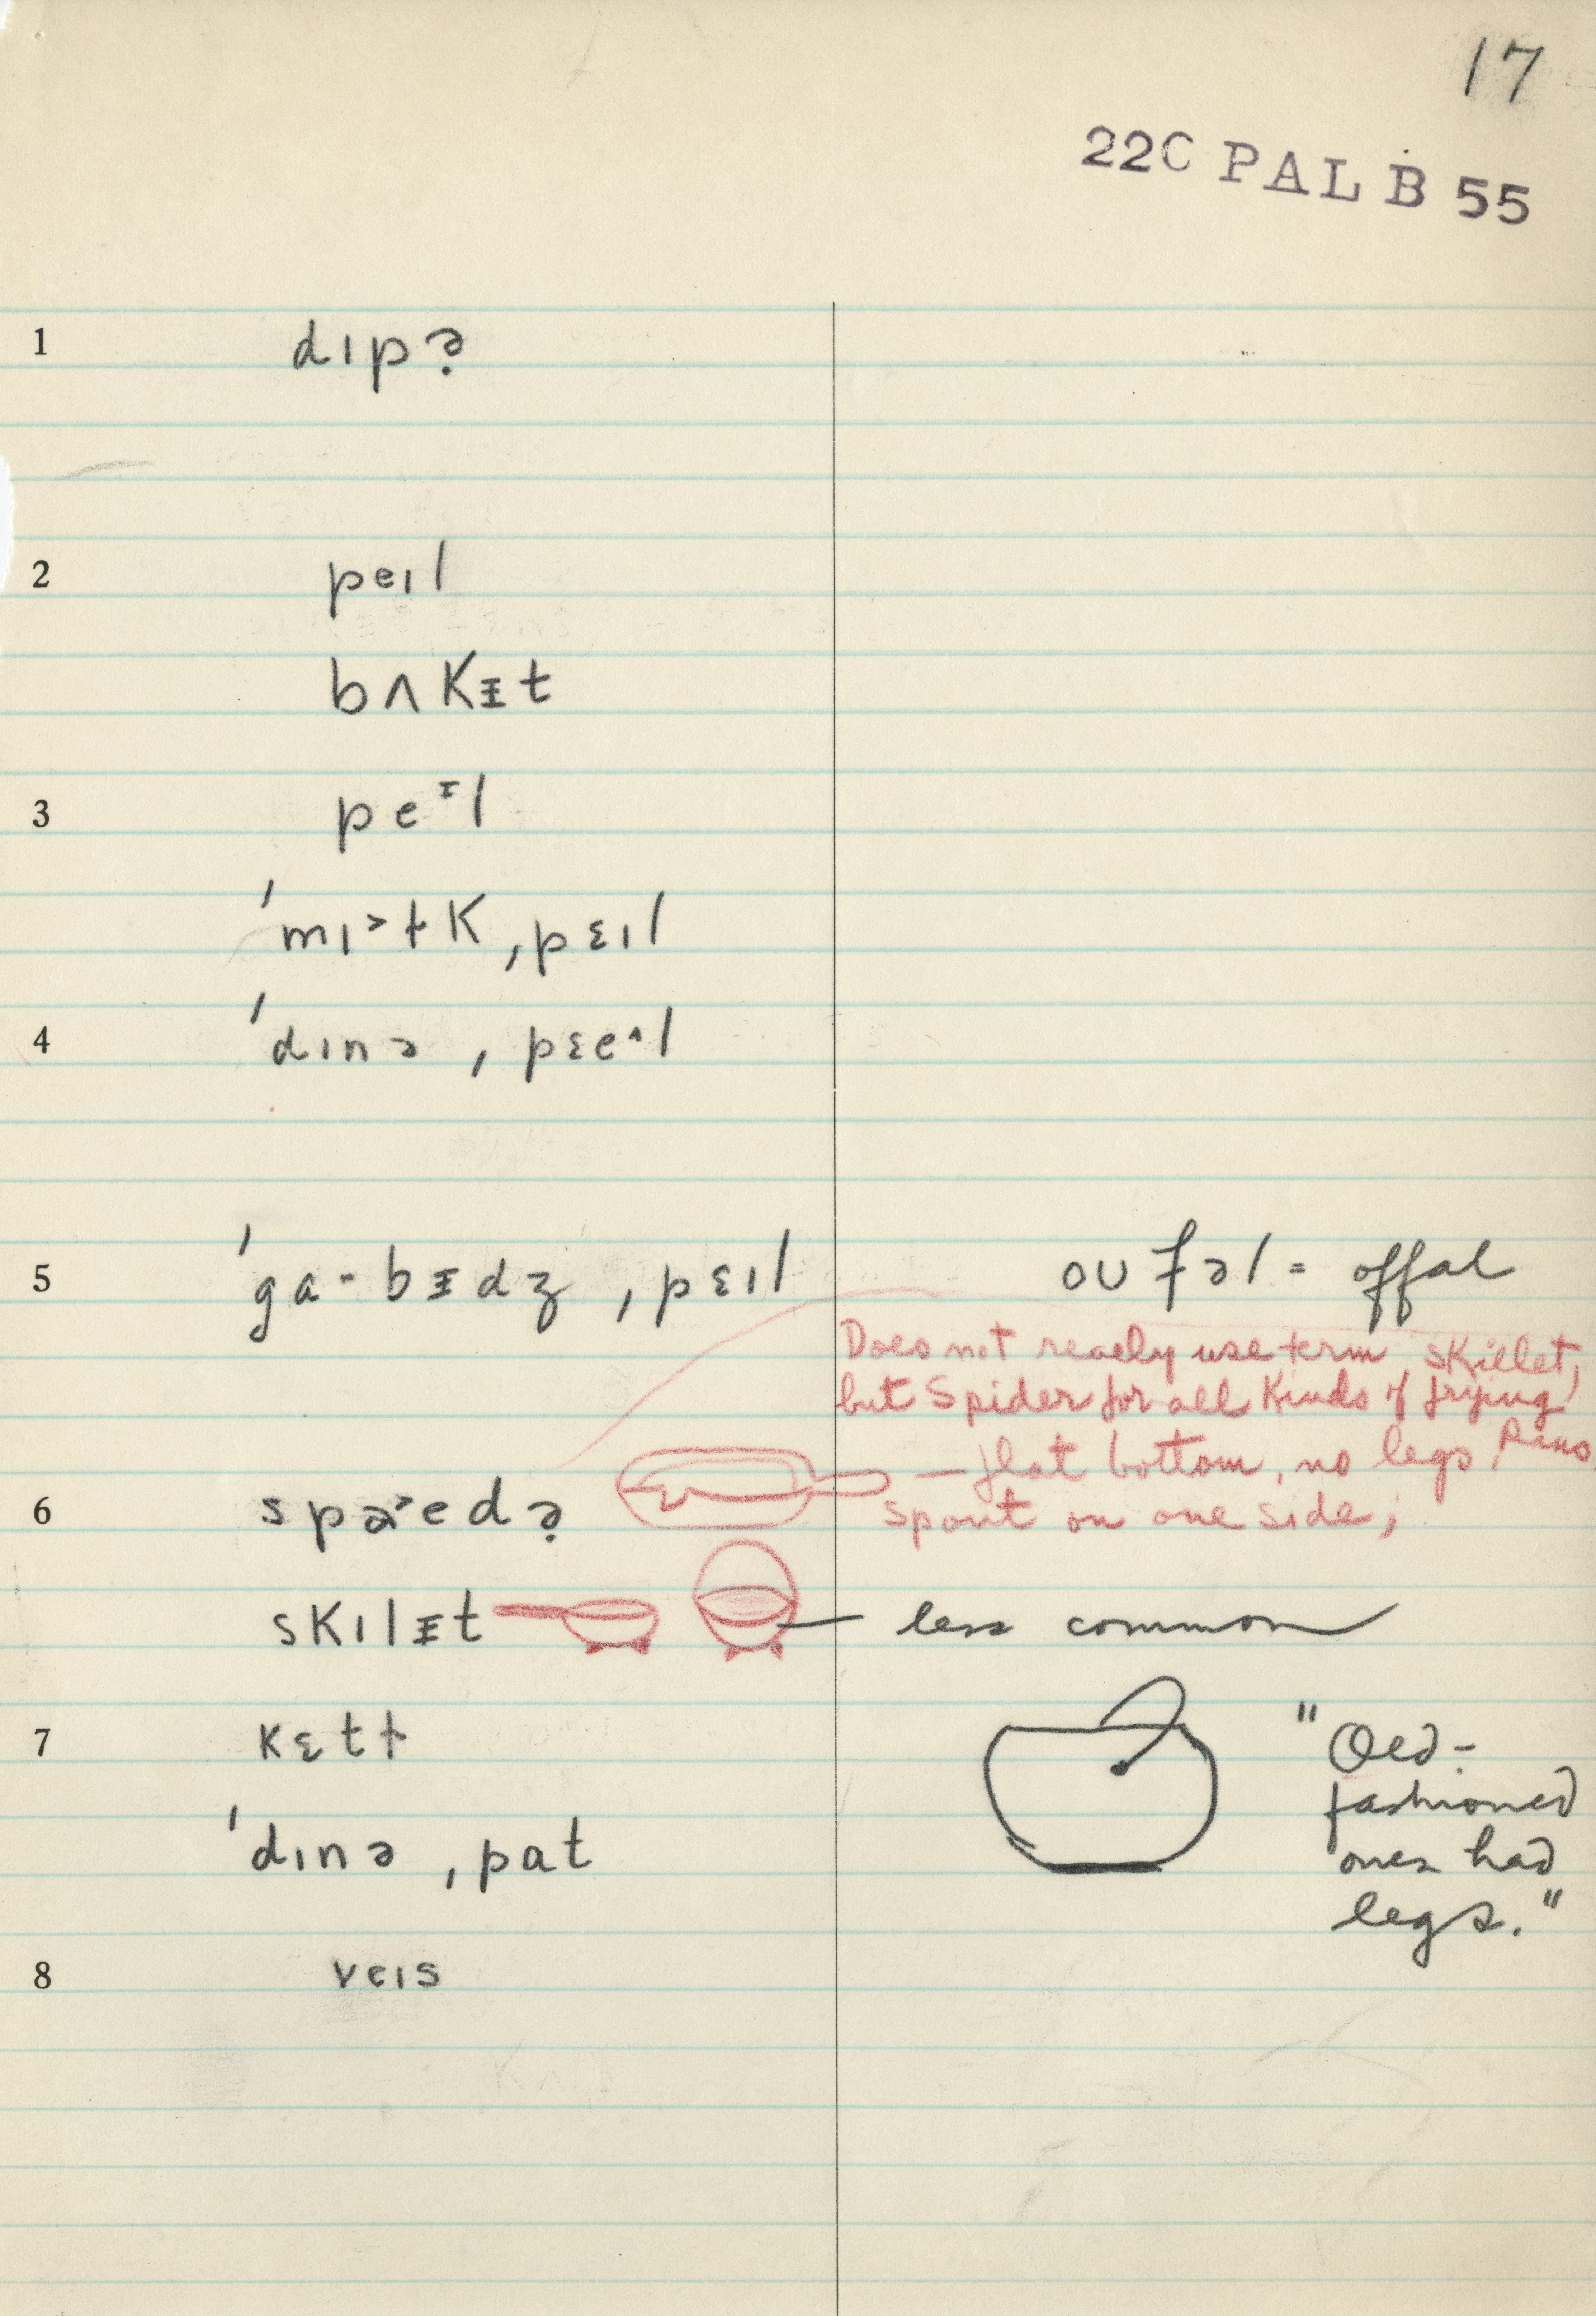 17
22C PAL B 55
1 dɪpə̣
2 peɪl
bʌKᵻt
3 peᶦl
ˈmɪ˃ɫK ˌpɛɪl
4 ˈdɪnə ˌpɛe˄l
5 ˈga·bᵻdʒ ˌpɛɪl
oʊfəl = offal
Does not really use term skillet,
but Spider for all Kinds of frying
pans
— flat bottom, no legs
spout on one side;
6 spa˃edə̣
sKɪlᵻt
— less common
7 Kɛtɫ
"Old-
fashioned
ones had
legs."
ˈdɪnə ˌpat
8 veɪs